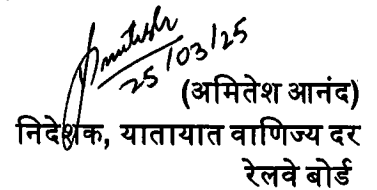 25/03/25
(अमितेश आनंद)
निदेशक, यातायात वाणिज्य दर
रेलवे बोर्ड